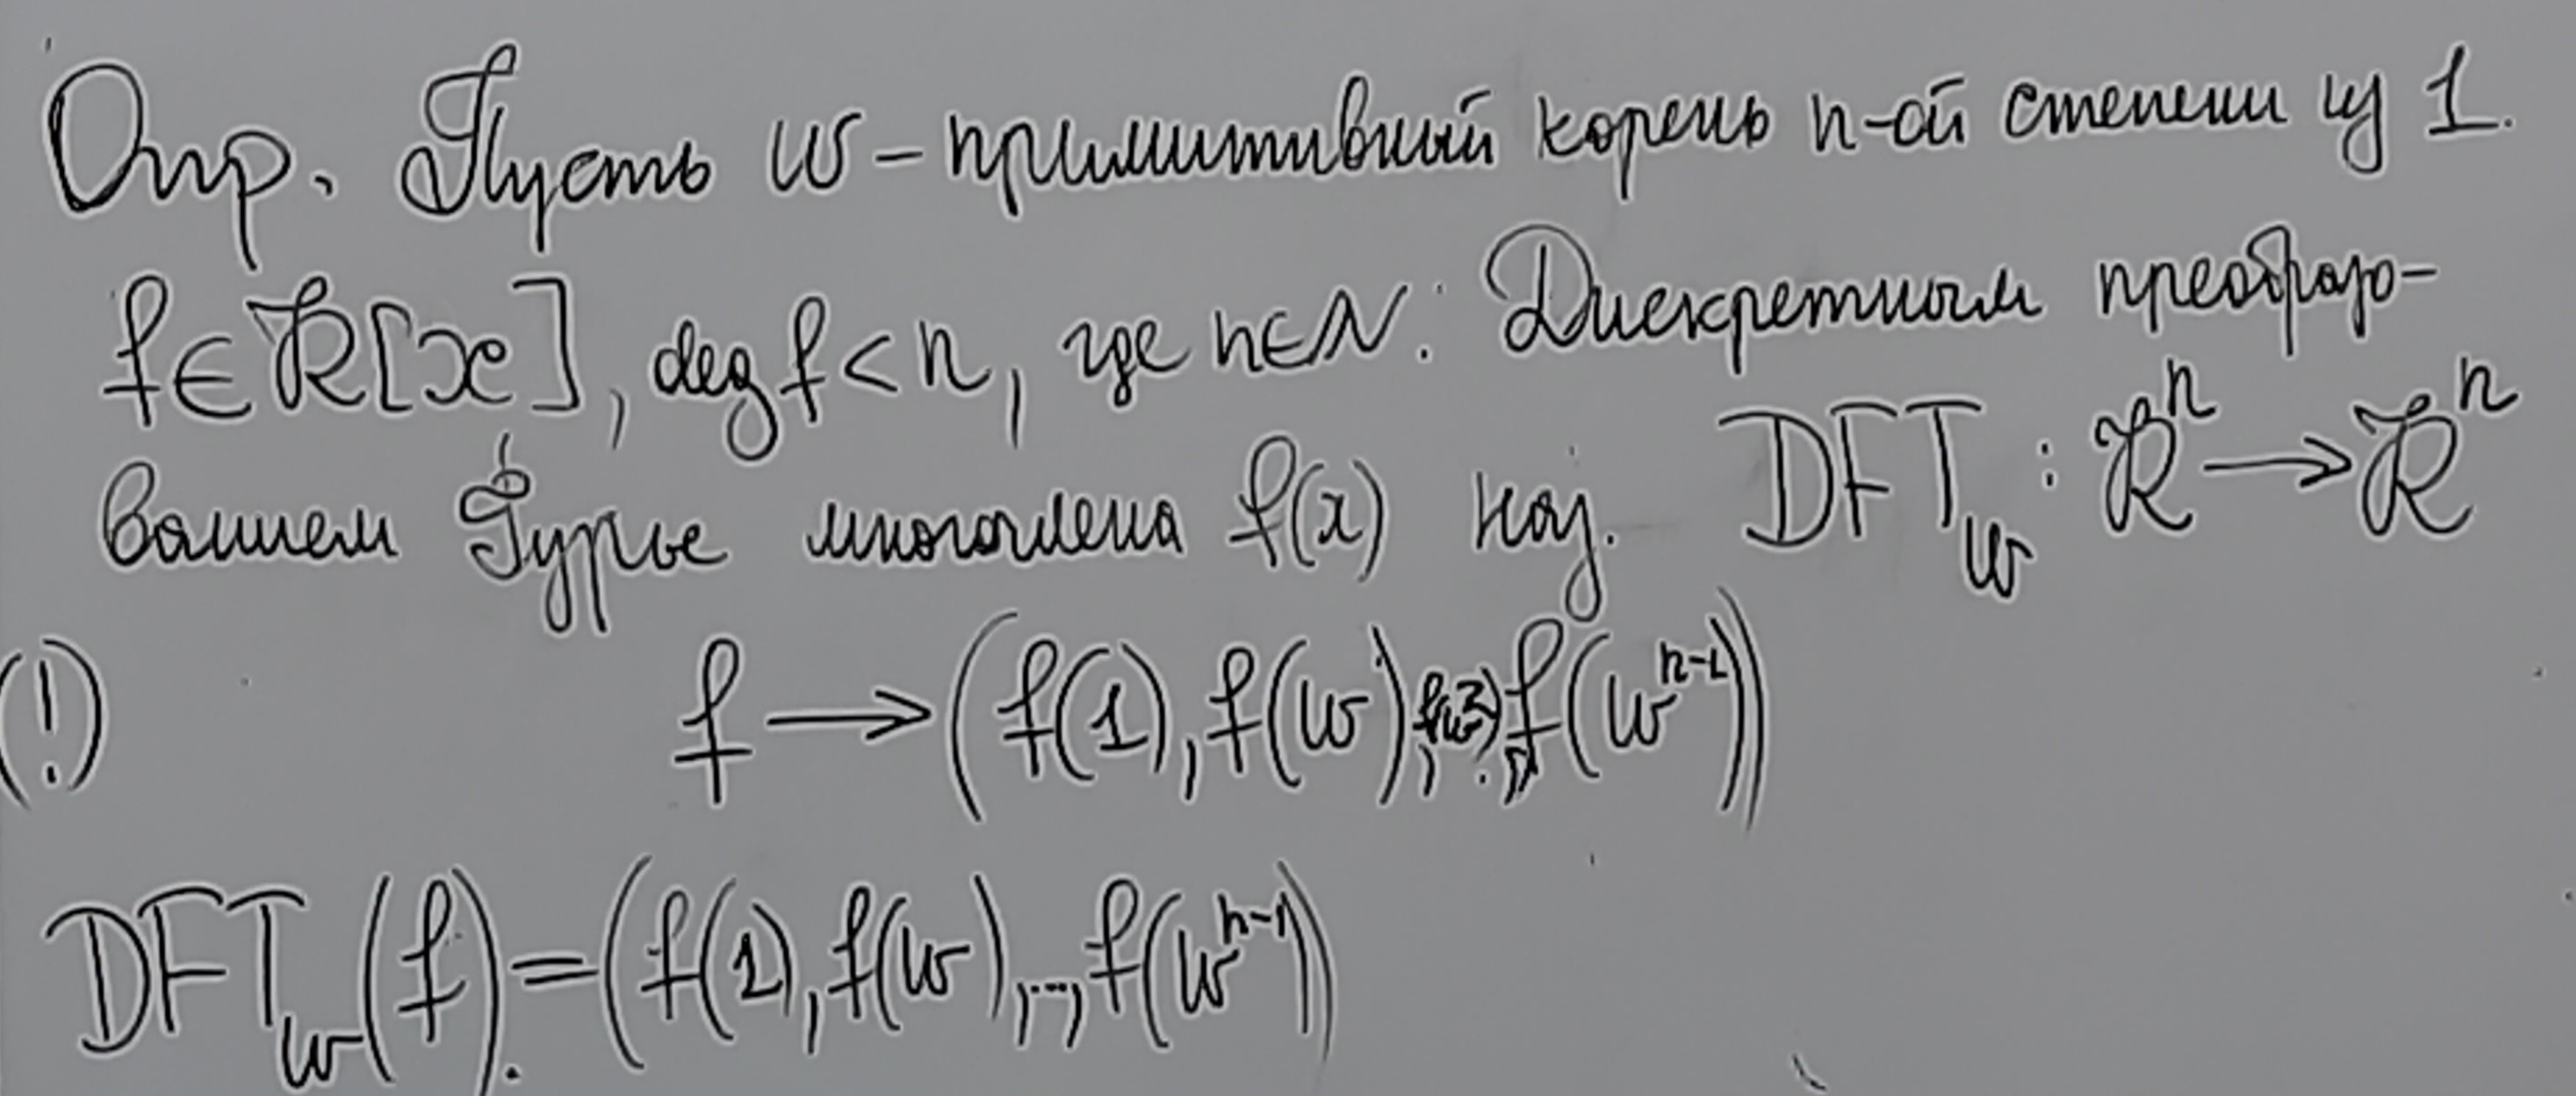 Опр. Пусть w - примитивный корень n-ой степени из 1.
f∈R[x], deg f < n, где n∈N. Дискретным преобразо-
ванием Фурье многочлена f(x) наз. DFT_w : R^n → R^n
(!) f → (f(1), f(w), f(w^2), ..., f(w^{n-1}))
DFT_w(f) = (f(1), f(w), ..., f(w^{n-1}))